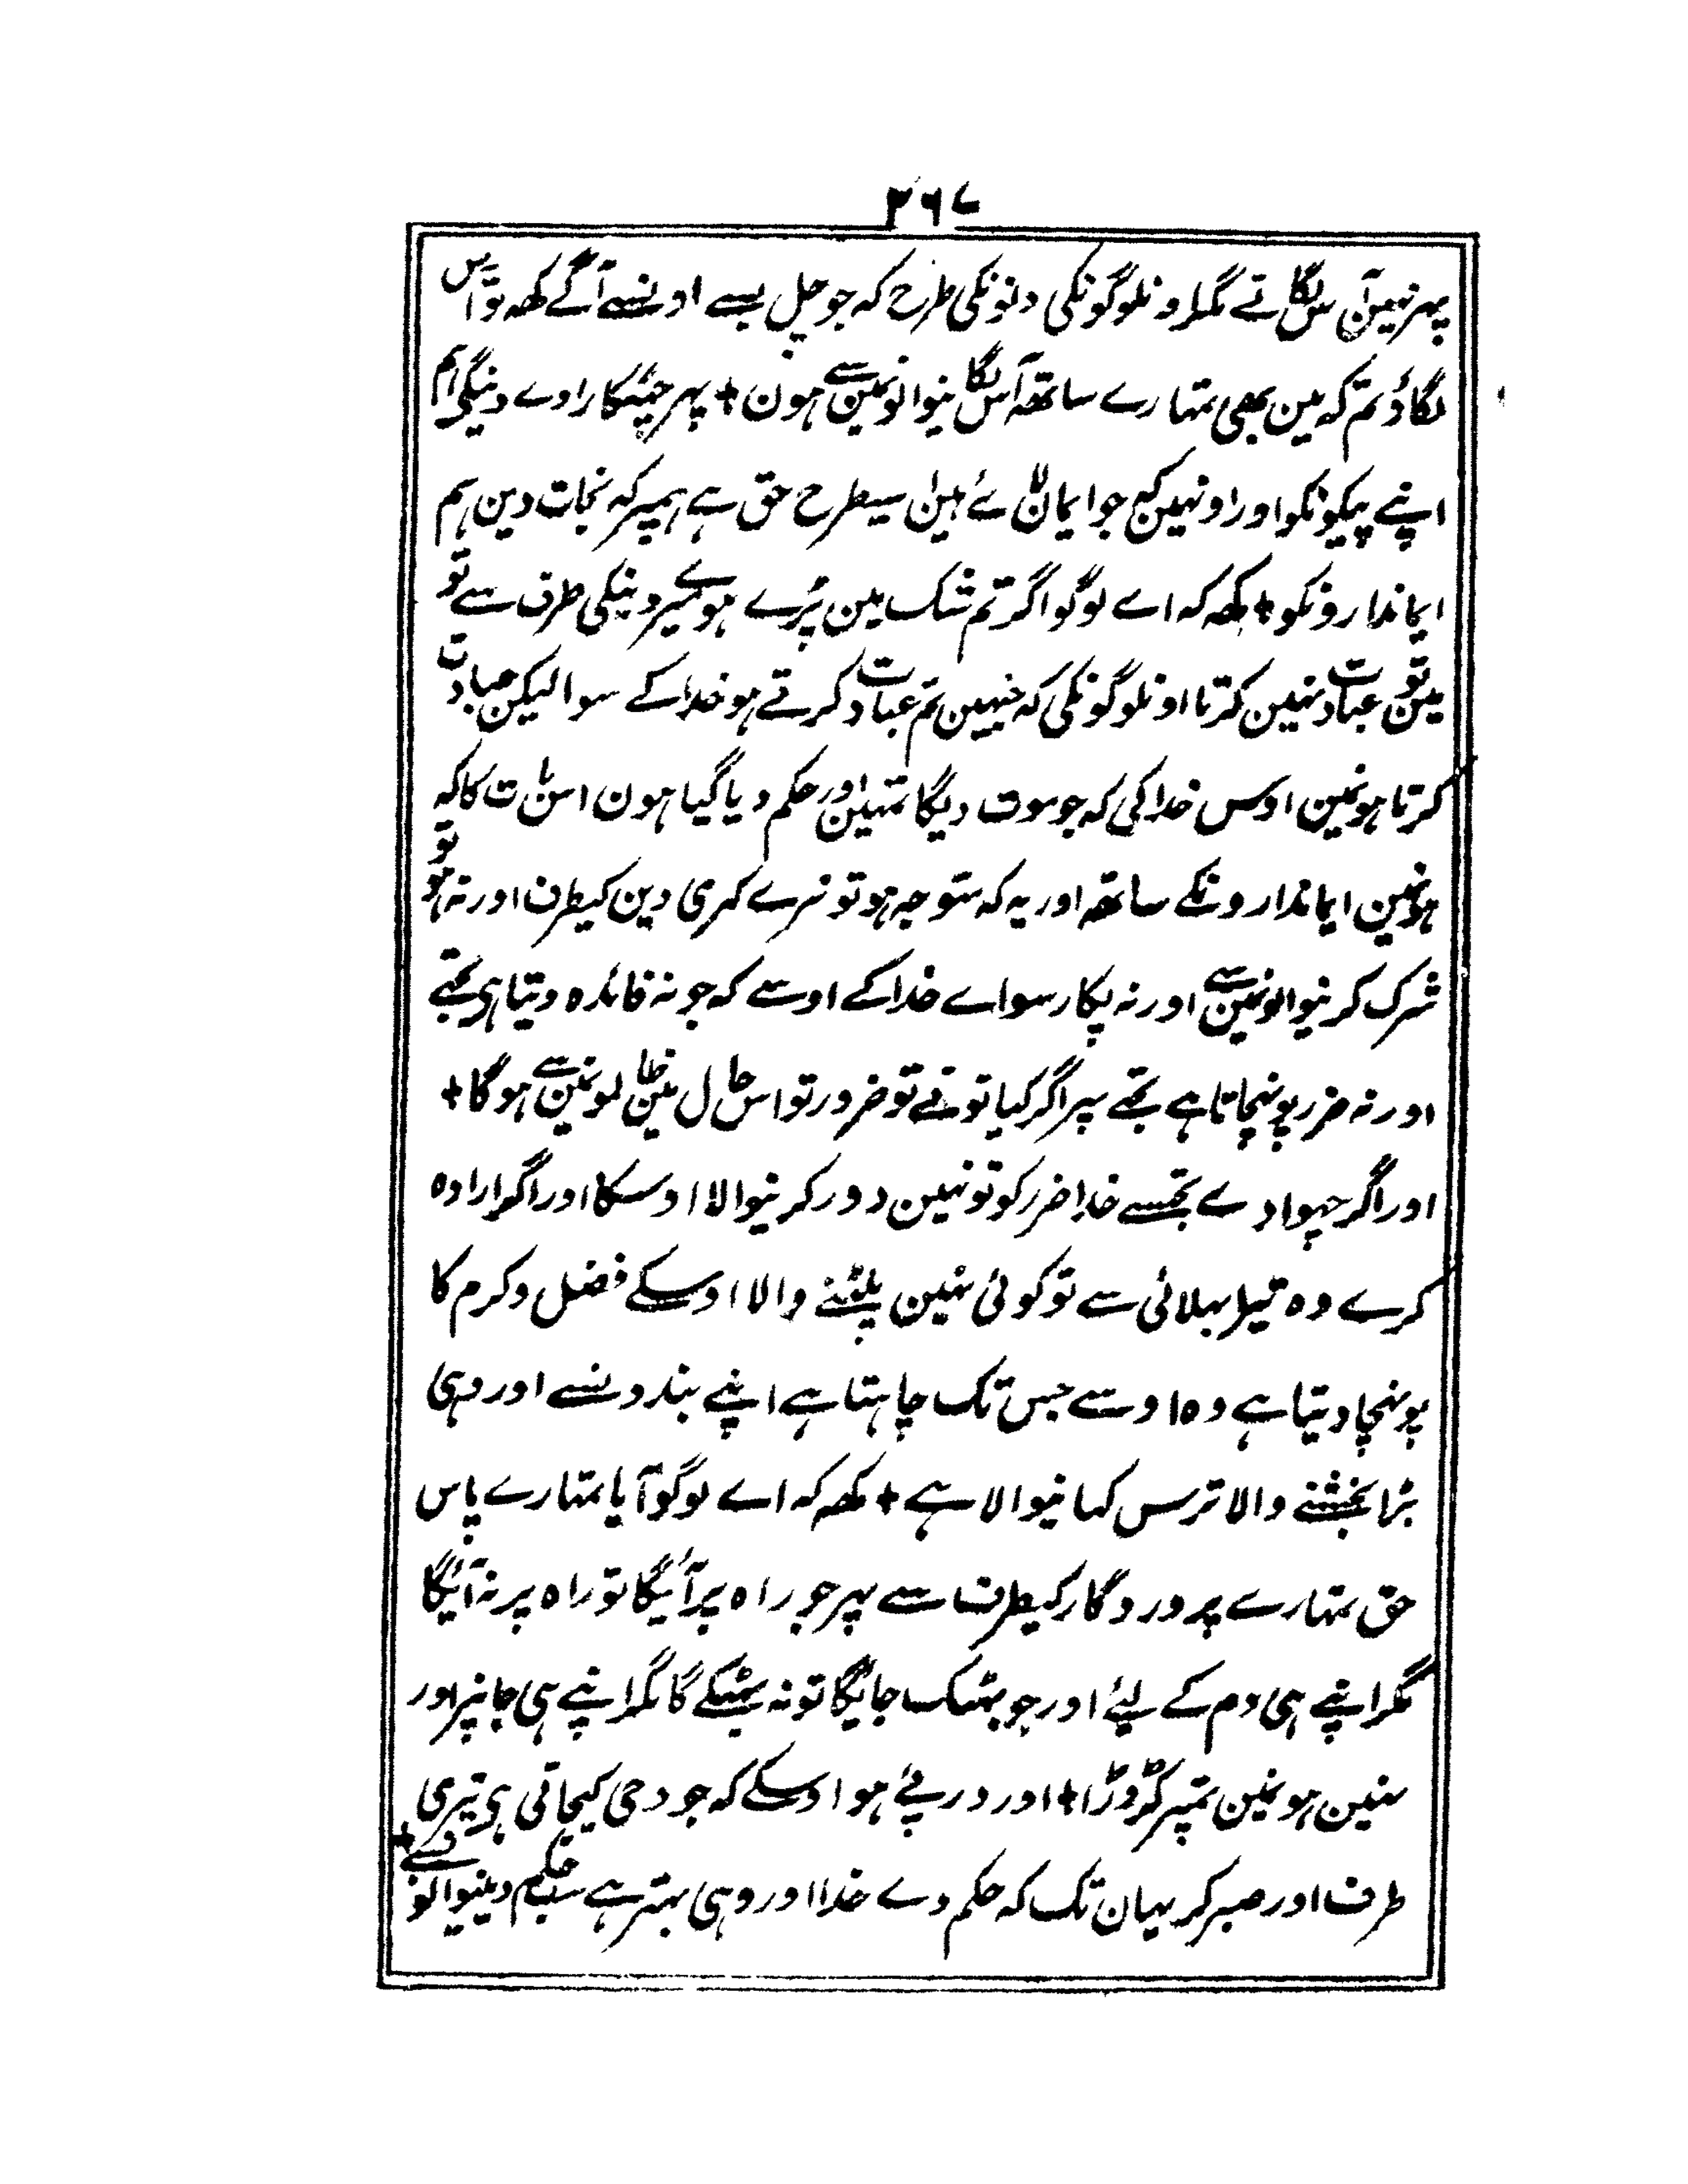 ۲۶۷
پہر نہین آس لگاتے مگر اونلوگونکی دنونکی طرح کہ جو چل بسے اونسے آگے کھہ تو آس
لگاؤ تم کہ مین بھی تمہارے ساتھہ آس لگانیوالونمین سے ہون + پہر چھٹکارا دے دینگے ہم
اپنے پیکونکو اور اونہین کہ جو ایمان لائے ہین اسیطرح حق ہے ہمپر کہ نجات دین ہم
ایماندارونکو + کھہ کہ اے لوگو اگر تم شک مین پڑے ہوے میرے دینکی طرف سے تو
مین تو عبادت نہین کرتا اونلوگونکی کہ جنہین تم عبادت کرتے ہو خدا کے سوا لیکن عبادت
کرتا ہونمین اوس خدا کی کہ جو موت دیگا تمہین اور حکم دیا گیا ہون اس بات کا کہ
ہونمین ایماندارونکے ساتھہ اور یہ کہ متوجہ ہو تو نرے کھری دین کیطرف اور نہ ہو تو
شرک کرنیوالونمین سے اور نہ پکار سواے خدا کے اوسے کہ جو نہ فائدہ دیتا ہی تجھے
اور نہ ضرر پونہچاتا ہے تجھے پہر اگر کیا تونے تو ضرور تو اس حال مین ظالمونمین سے ہوگا +
اور اگر چہوادے تجھسے خدا ضرر کو تو نہین دور کرنیوالا اوسکا اور اگر ارادہ
کرے وہ تیرا بہلائی سے تو کوئی نہین پلٹنے والا اوسکے فضل و کرم کا
پونہچا دیتا ہے وہ اوسے جس تک چاہتا ہے اپنے بندونسے اور وہی
بڑا بخشنے والا ترس کہانیوالا ہے + کھہ کہ اے لوگو آیا تمہارے پاس
حق تمہارے پروردگار کیطرف سے پہر جو راہ پر آئیگا تو راہ پر نہ آئیگا
مگر اپنے ہی دم کے لیئے اور جو بہٹک جائیگا تو نہ بہٹکے گا مگر اپنے ہی جانپر اور
نہین ہونمین تمپر کڑوڑا + اور درپئے ہو اوسکے کہ جو وحی کیجاتی ہی تیری
طرف اور صبر کر یہان تک کہ حکم دے خدا اور وہی بہتر ہے سب حکم دینیوالونسے +